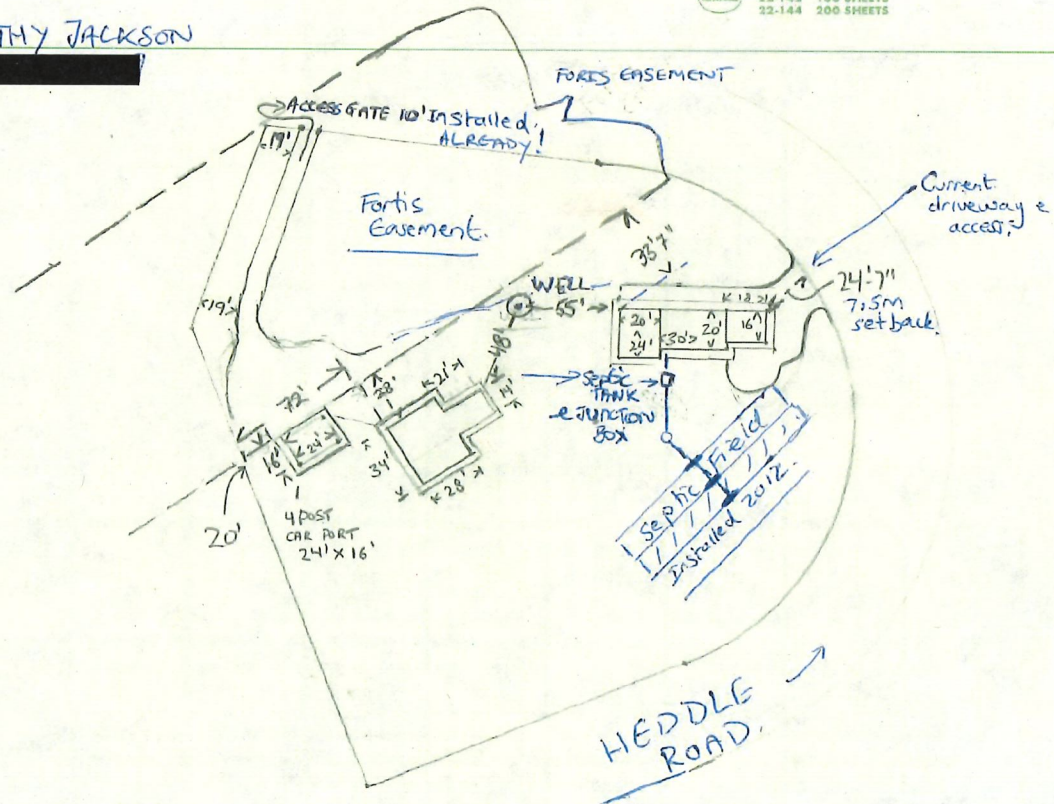 THY JACKSON
22-144 200 SHEETS
FORTIS EASEMENT
ACCESS GATE 10' Installed.
ALREADY!
19'
Fortis
Easement.
Current
driveway e
access;
33'7"
WELL
55'
48'
24'-7"
7.5m
setback
18'
20'
24'
30'
20'
16'
19'
Septic
TANK
e JUNCTION
BOX
72'
28'
21'
14'
16'
24'
34'
28'
20'
4 POST
CAR PORT
24' X 16'
Septic Field
Installed 2012.
HEDDLE
ROAD.